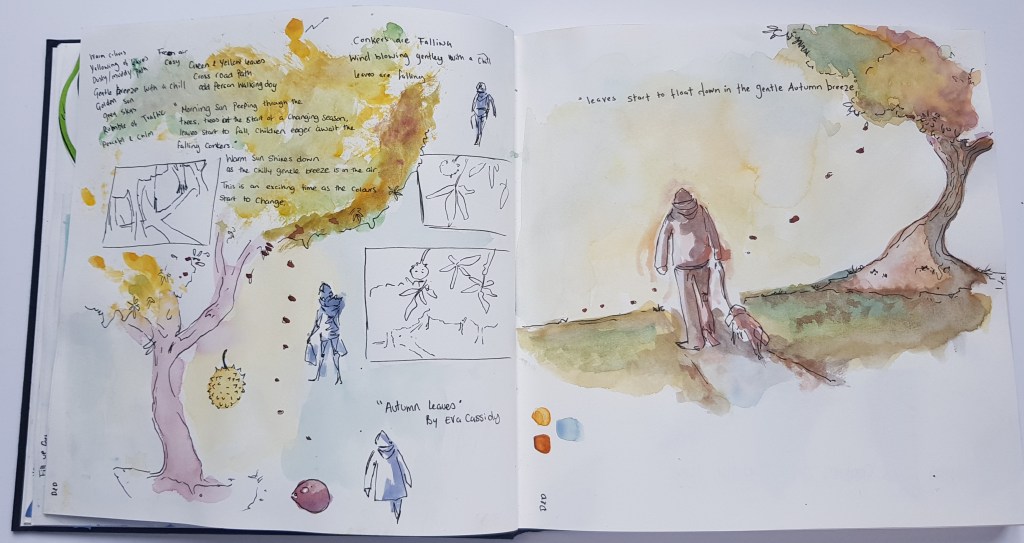 Warm colours
Yellowing of leaves
Dusty/muddy Path
Gentle breeze with a chill
Golden sun
open skies
Rumble of Traffic
Peaceful & Calm
air
Green & Yellow leaves
Cross road Path
add Percon Walking dog
"Morning Sun Peeping through the
trees, trees at the Start of a Changing Season,
leaves start to fall, Children eager await the
falling Conkers."
Warm Sun Shines down
as the Chilly gentle breeze is in the air
This is an exciting time as the Colours
Start to Change.
Conkers are Falling
Wind blowing gentley with a Chill
leaves are falling
"Autumn leaves"
By Eva Cassidy
"leaves start to float down in the gentle Autumn breeze"